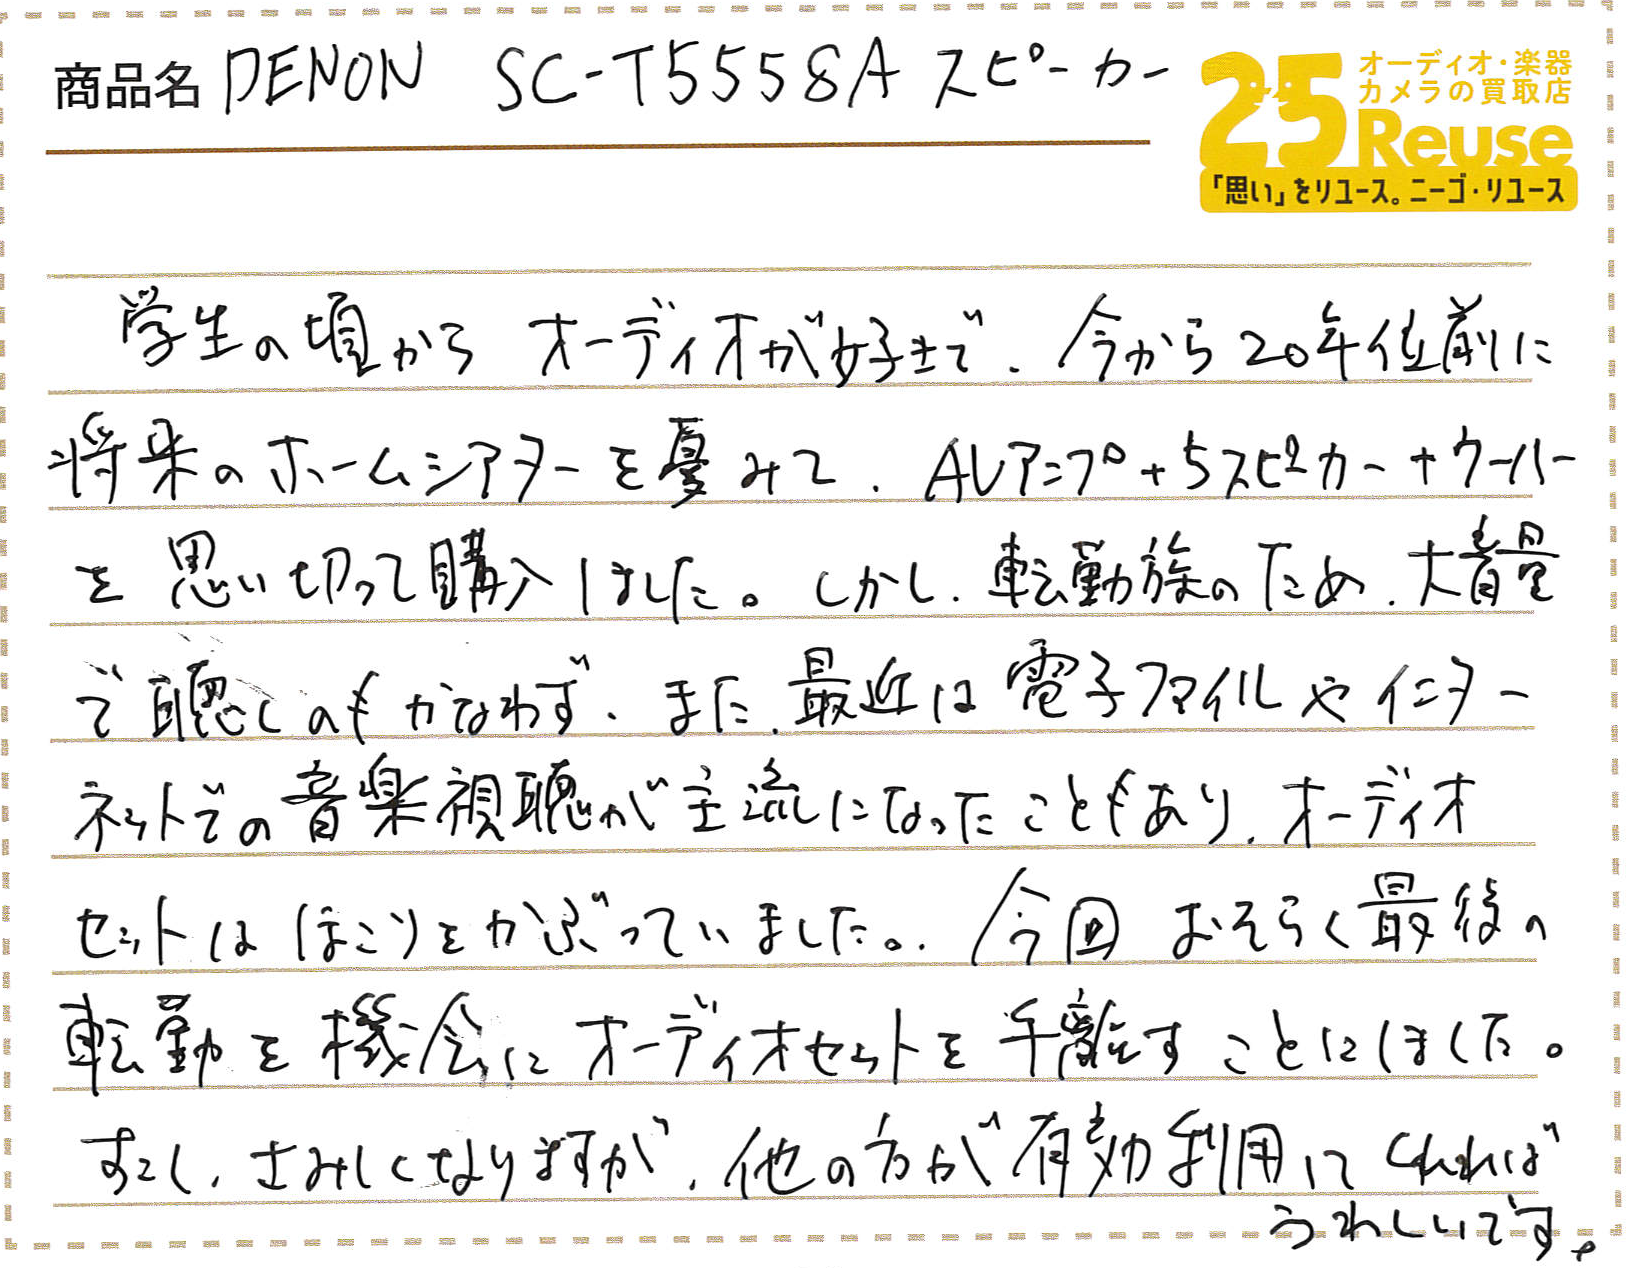 商品名 DENON SC-T555SA スピーカー
25
オーディオ・楽器
カメラの買取店
Reuse
「思い」をリユース。ニーゴ・リユース
学生の頃から オーディオが好きで、今から20年位前に
将来のホームシアターを夢みて、AVアンプ+5スピーカー+ウーハー
を思い切って購入しました。しかし、転勤族のため、大音量
で聴くのもかなわず、また、最近は電子ファイルやインター
ネットでの音楽視聴が主流になったこともあり、オーディオ
セットはほこりをかぶっていました。今回おそらく最後の
転勤を機会にオーディオセットを手離すことにしました。
すこし、さみしくなりますが、他の方が有効利用してくれれば
うれしいです。